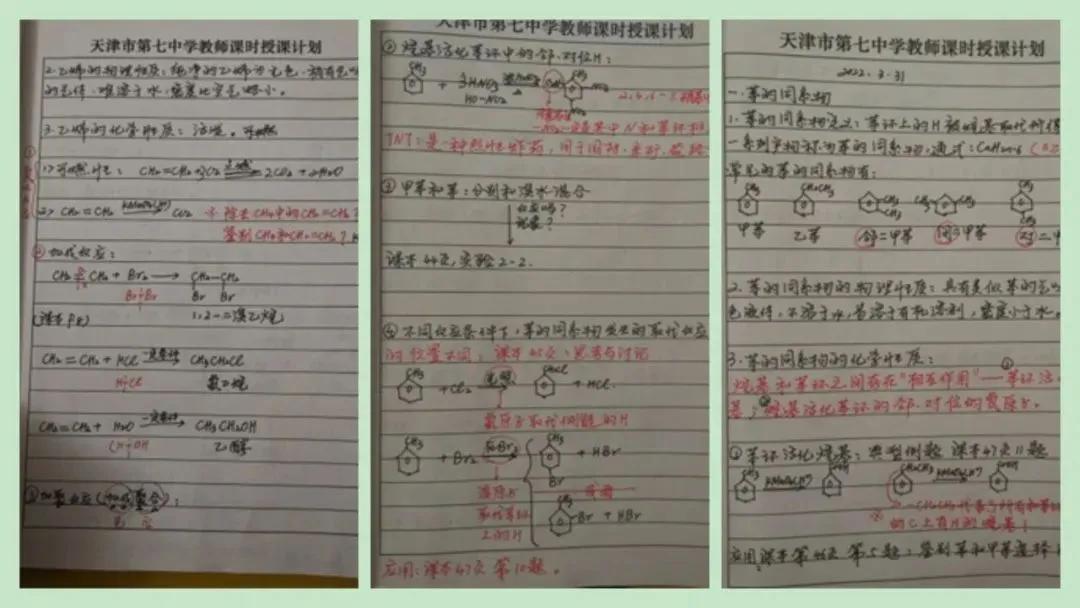 天津市第七中学教师课时授课计划
2.乙烯的物理性质：纯净的乙烯为无色、稍有气味
的气体，难溶于水，密度比空气略小。
3.乙烯的化学性质：活泼。可燃
(1)可燃性：CH₂=CH₂+3O₂ 点燃 2CO₂+2H₂O
CH₂=CH₂ KMnO₄(H⁺) CO₂ ※ 除去CH₄中的CH₂=CH₂?
鉴别CH₄和CH₂=CH₂?
②加成反应：
CH₂=CH₂ + Br₂ → CH₂—CH₂
Br+Br Br Br
(课本P) 1,2-二溴乙烷
CH₂=CH₂ + HCl 一定条件 CH₃CH₂Cl
H+Cl 氯乙烷
CH₂=CH₂ + H₂O 一定条件 CH₃CH₂OH
H+OH 乙醇
③加聚反应(加成聚合)：
天津市第七中学教师课时授课计划
②烷基活化苯环中的邻、对位H：
CH₃ CH₃
+ 3HNO₃
HO-NO₂ 2,4,6-三硝基
NO₂
-NO₂ 其中N和苯环相
TNT：是一种烈性炸药，用于国防、采矿、筑路
③甲苯和苯：分别和溴水混合
反应吗？
现象？
课本44页，实验2-2.
④不同反应条件下，苯的同系物发生的取代反应
的位置不同，课本45页：思考与讨论
CH₃ +Cl₂ 光照 CH₂Cl +HCl.
氯原子取代侧链的H
CH₃ +Br₂ FeBr₃ CH₃ + HBr
Br
溴原子 或
取代苯环 CH₃ Br + HBr
上的H
应用：课本47页 第10题。
天津市第七中学教师课时授课计划
2022.3.31
一.苯的同系物
1.苯的同系物定义：苯环上的H被烷基取代所得
一系列产物称为苯的同系物，通式：CnH2n-6
常见的苯的同系物有：
CH₃ CH₂CH₃ CH₃ CH₃ CH₃ CH₃ CH₃
甲苯 乙苯 邻二甲苯 间二甲苯 对二甲
2.苯的同系物的物理性质：具有类似苯的气味
色液体，不溶于水，易溶于有机溶剂，密度小于水。
3.苯的同系物的化学性质：
烷基和苯环之间存在“相互作用”——苯环活
基；烷基活化苯环的邻、对位的氢原子。
①苯环活化烷基：典型例题 课本47页11题
CH₃ KMnO₄(H⁺) COOH CH₂CH₃ KMnO₄(H⁺) COOH
※
的C上有H的烷基！
应用课本第46页 第5题：鉴别苯和甲苯